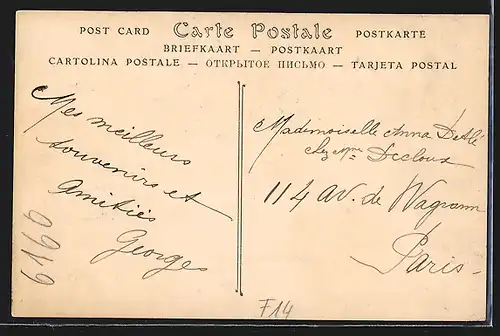 POST CARD Carte Postale POSTKARTE
BRIEFKAART — POSTKAART
CARTOLINA POSTALE — ОТКРЫТОЕ ПИСЬМО — TARJETA POSTAL
Mes meilleurs
souvenirs et
amitiés
Georges
6160
Mademoiselle Anna
chez Mme Decloux
114 av. de Wagram
Paris -
F14